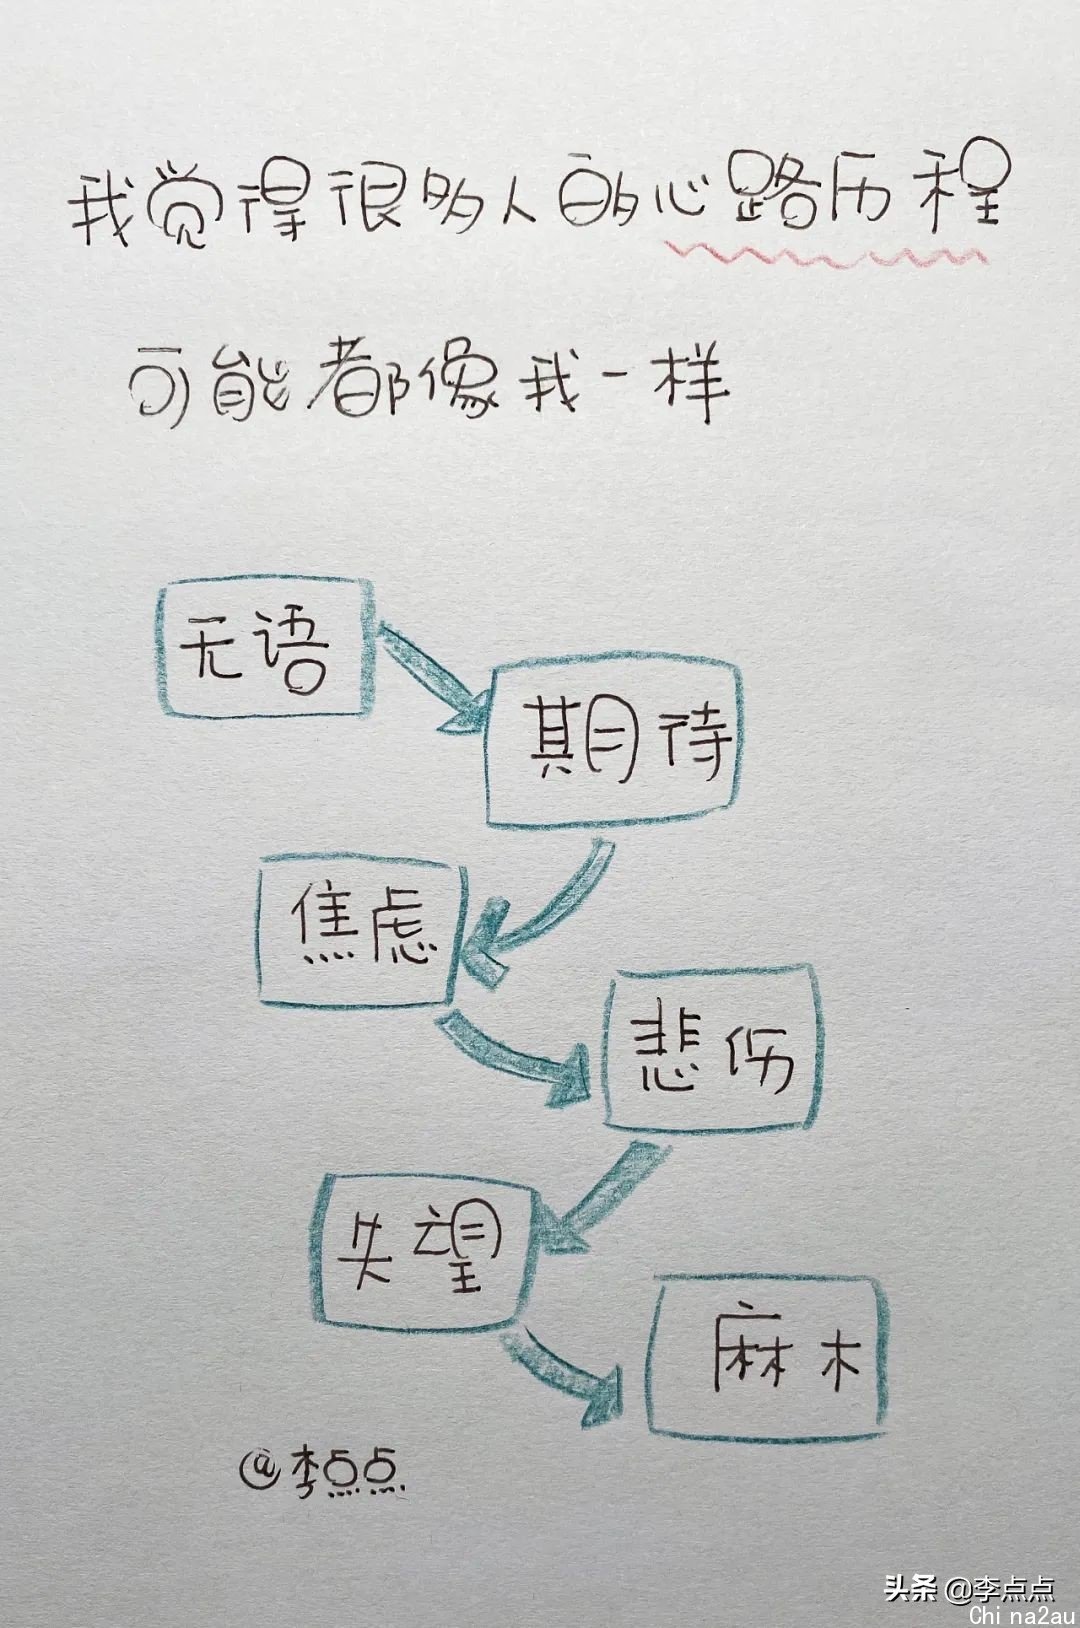 我觉得很多人的心路历程
可能都像我一样
无语
期待
焦虑
悲伤
失望
麻木
@李点点
头条 @李点点
China2au